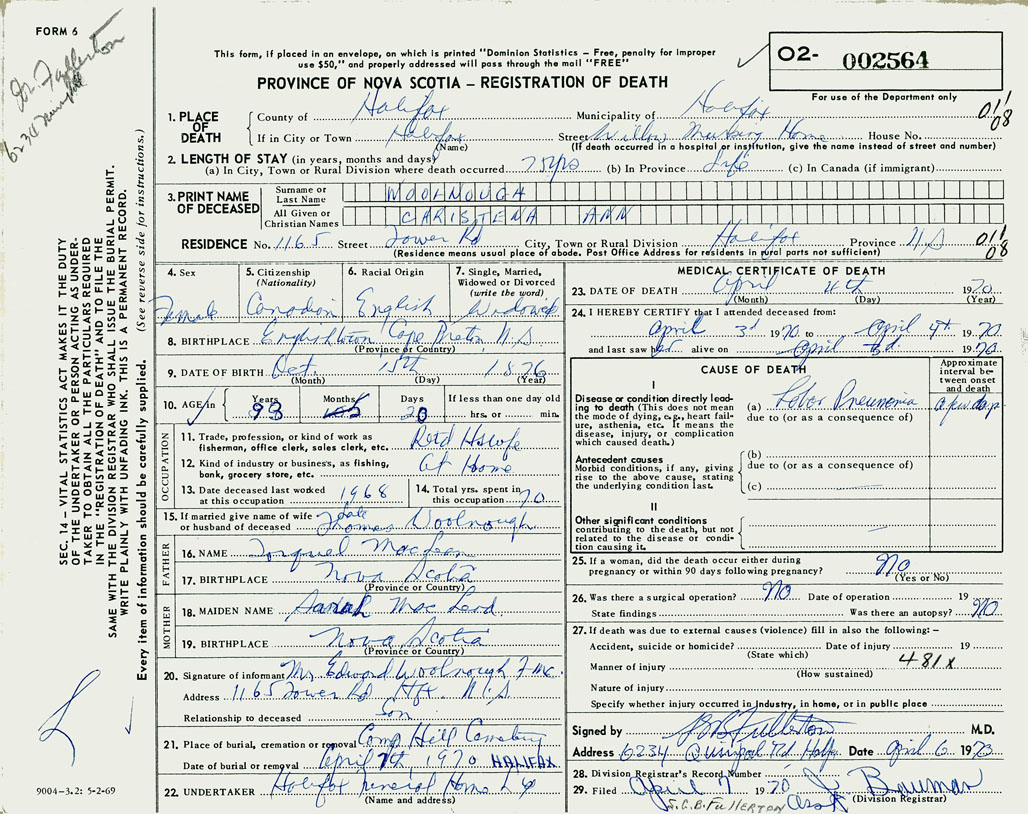 FORM 6
Dr. Fullerton
6234 Quinpool
This form, if placed in an envelope, on which is printed "Dominion Statistics – Free, penalty for improper
use $50," and properly addressed will pass through the mail "FREE"
PROVINCE OF NOVA SCOTIA – REGISTRATION OF DEATH
O2- 002564
For use of the Department only
SEC. 14 – VITAL STATISTICS ACT MAKES IT THE DUTY
OF THE UNDERTAKER OR PERSON ACTING AS UNDER-
TAKER TO OBTAIN ALL THE PARTICULARS REQUIRED
IN THE "REGISTRATION OF DEATH" AND TO FILE THE
SAME WITH THE DIVISION REGISTRAR WHO SHALL ISSUE THE BURIAL PERMIT.
WRITE PLAINLY WITH UNFADING INK. THIS IS A PERMANENT RECORD.
Every item of information should be carefully supplied. (See reverse side for instructions.)
1. PLACE OF DEATH
County of Halifax Municipality of Halifax
011
08
If in City or Town Halifax Street Willow Nursing Home House No.
(Name) (If death occurred in a hospital or institution, give the name instead of street and number)
2. LENGTH OF STAY (in years, months and days)
(a) In City, Town or Rural Division where death occurred 75 yrs (b) In Province Life (c) In Canada (if immigrant)
3. PRINT NAME OF DECEASED
Surname or Last Name WOOLNOUGH
All Given or Christian Names CHRISTENA ANN
RESIDENCE No. 1165 Street Tower Rd City, Town or Rural Division Halifax Province N.S
011
08
(Residence means usual place of abode. Post Office Address for residents in rural parts not sufficient)
4. Sex Female
5. Citizenship (Nationality) Canadian
6. Racial Origin English
7. Single, Married, Widowed or Divorced (write the word) Widowed
8. BIRTHPLACE Englishtown Cape Breton N.S
(Province or Country)
9. DATE OF BIRTH Oct. 15th 1876
(Month) (Day) (Year)
10. AGE in Years 93 Months Days 20 If less than one day old
hrs. or min.
OCCUPATION
11. Trade, profession, or kind of work as
fisherman, office clerk, sales clerk, etc. Retd Hswfe
12. Kind of industry or business, as fishing,
bank, grocery store, etc. At Home
13. Date deceased last worked
at this occupation 1968
14. Total yrs. spent in
this occupation 70
15. If married give name of wife
or husband of deceased late Thomas Woolnough
FATHER
16. NAME Torquel MacLean
17. BIRTHPLACE Nova Scotia
(Province or Country)
MOTHER
18. MAIDEN NAME Sarah MacLeod
19. BIRTHPLACE Nova Scotia
(Province or Country)
20. Signature of informant Mr. Edward Woolnough
Address 1165 Tower Rd Hfx. N.S
Relationship to deceased Son
21. Place of burial, cremation or removal Camp Hill Cemetery
Date of burial or removal April 7th 1970 HALIFAX
22. UNDERTAKER Halifax Funeral Home
(Name and address)
9004-3.2: 5-2-69
MEDICAL CERTIFICATE OF DEATH
23. DATE OF DEATH April 4th 1970
(Month) (Day) (Year)
24. I HEREBY CERTIFY that I attended deceased from:
April 3d 1970 to April 4th 1970
and last saw her alive on April 3d. 1970
CAUSE OF DEATH
Approximate interval between onset and death
I
Disease or condition directly lead-
ing to death (This does not mean
the mode of dying, e.g., heart fail-
ure, asthenia, etc. It means the
disease, injury, or complication
which caused death.)
(a) Lobar Pneumonia a few days
due to (or as a consequence of)
Antecedent causes
Morbid conditions, if any, giving
rise to the above cause, stating
the underlying condition last.
(b)
due to (or as a consequence of)
(c)
II
Other significant conditions
contributing to the death, but not
related to the disease or condi-
tion causing it.
25. If a woman, did the death occur either during
pregnancy or within 90 days following pregnancy? No
(Yes or No)
26. Was there a surgical operation? No Date of operation 19
State findings Was there an autopsy? No
27. If death was due to external causes (violence) fill in also the following: –
Accident, suicide or homicide? Date of injury 19
(State which) 481x
Manner of injury
(How sustained)
Nature of injury
Specify whether injury occurred in industry, in home, or in public place
Signed by B Fullerton M.D.
Address 6234 Quinpool Rd Halifax Date April 6 1970
28. Division Registrar's Record Number
29. Filed April 7 1970 J. Bauman
(Division Registrar)
S.C.B. FULLERTON Asst